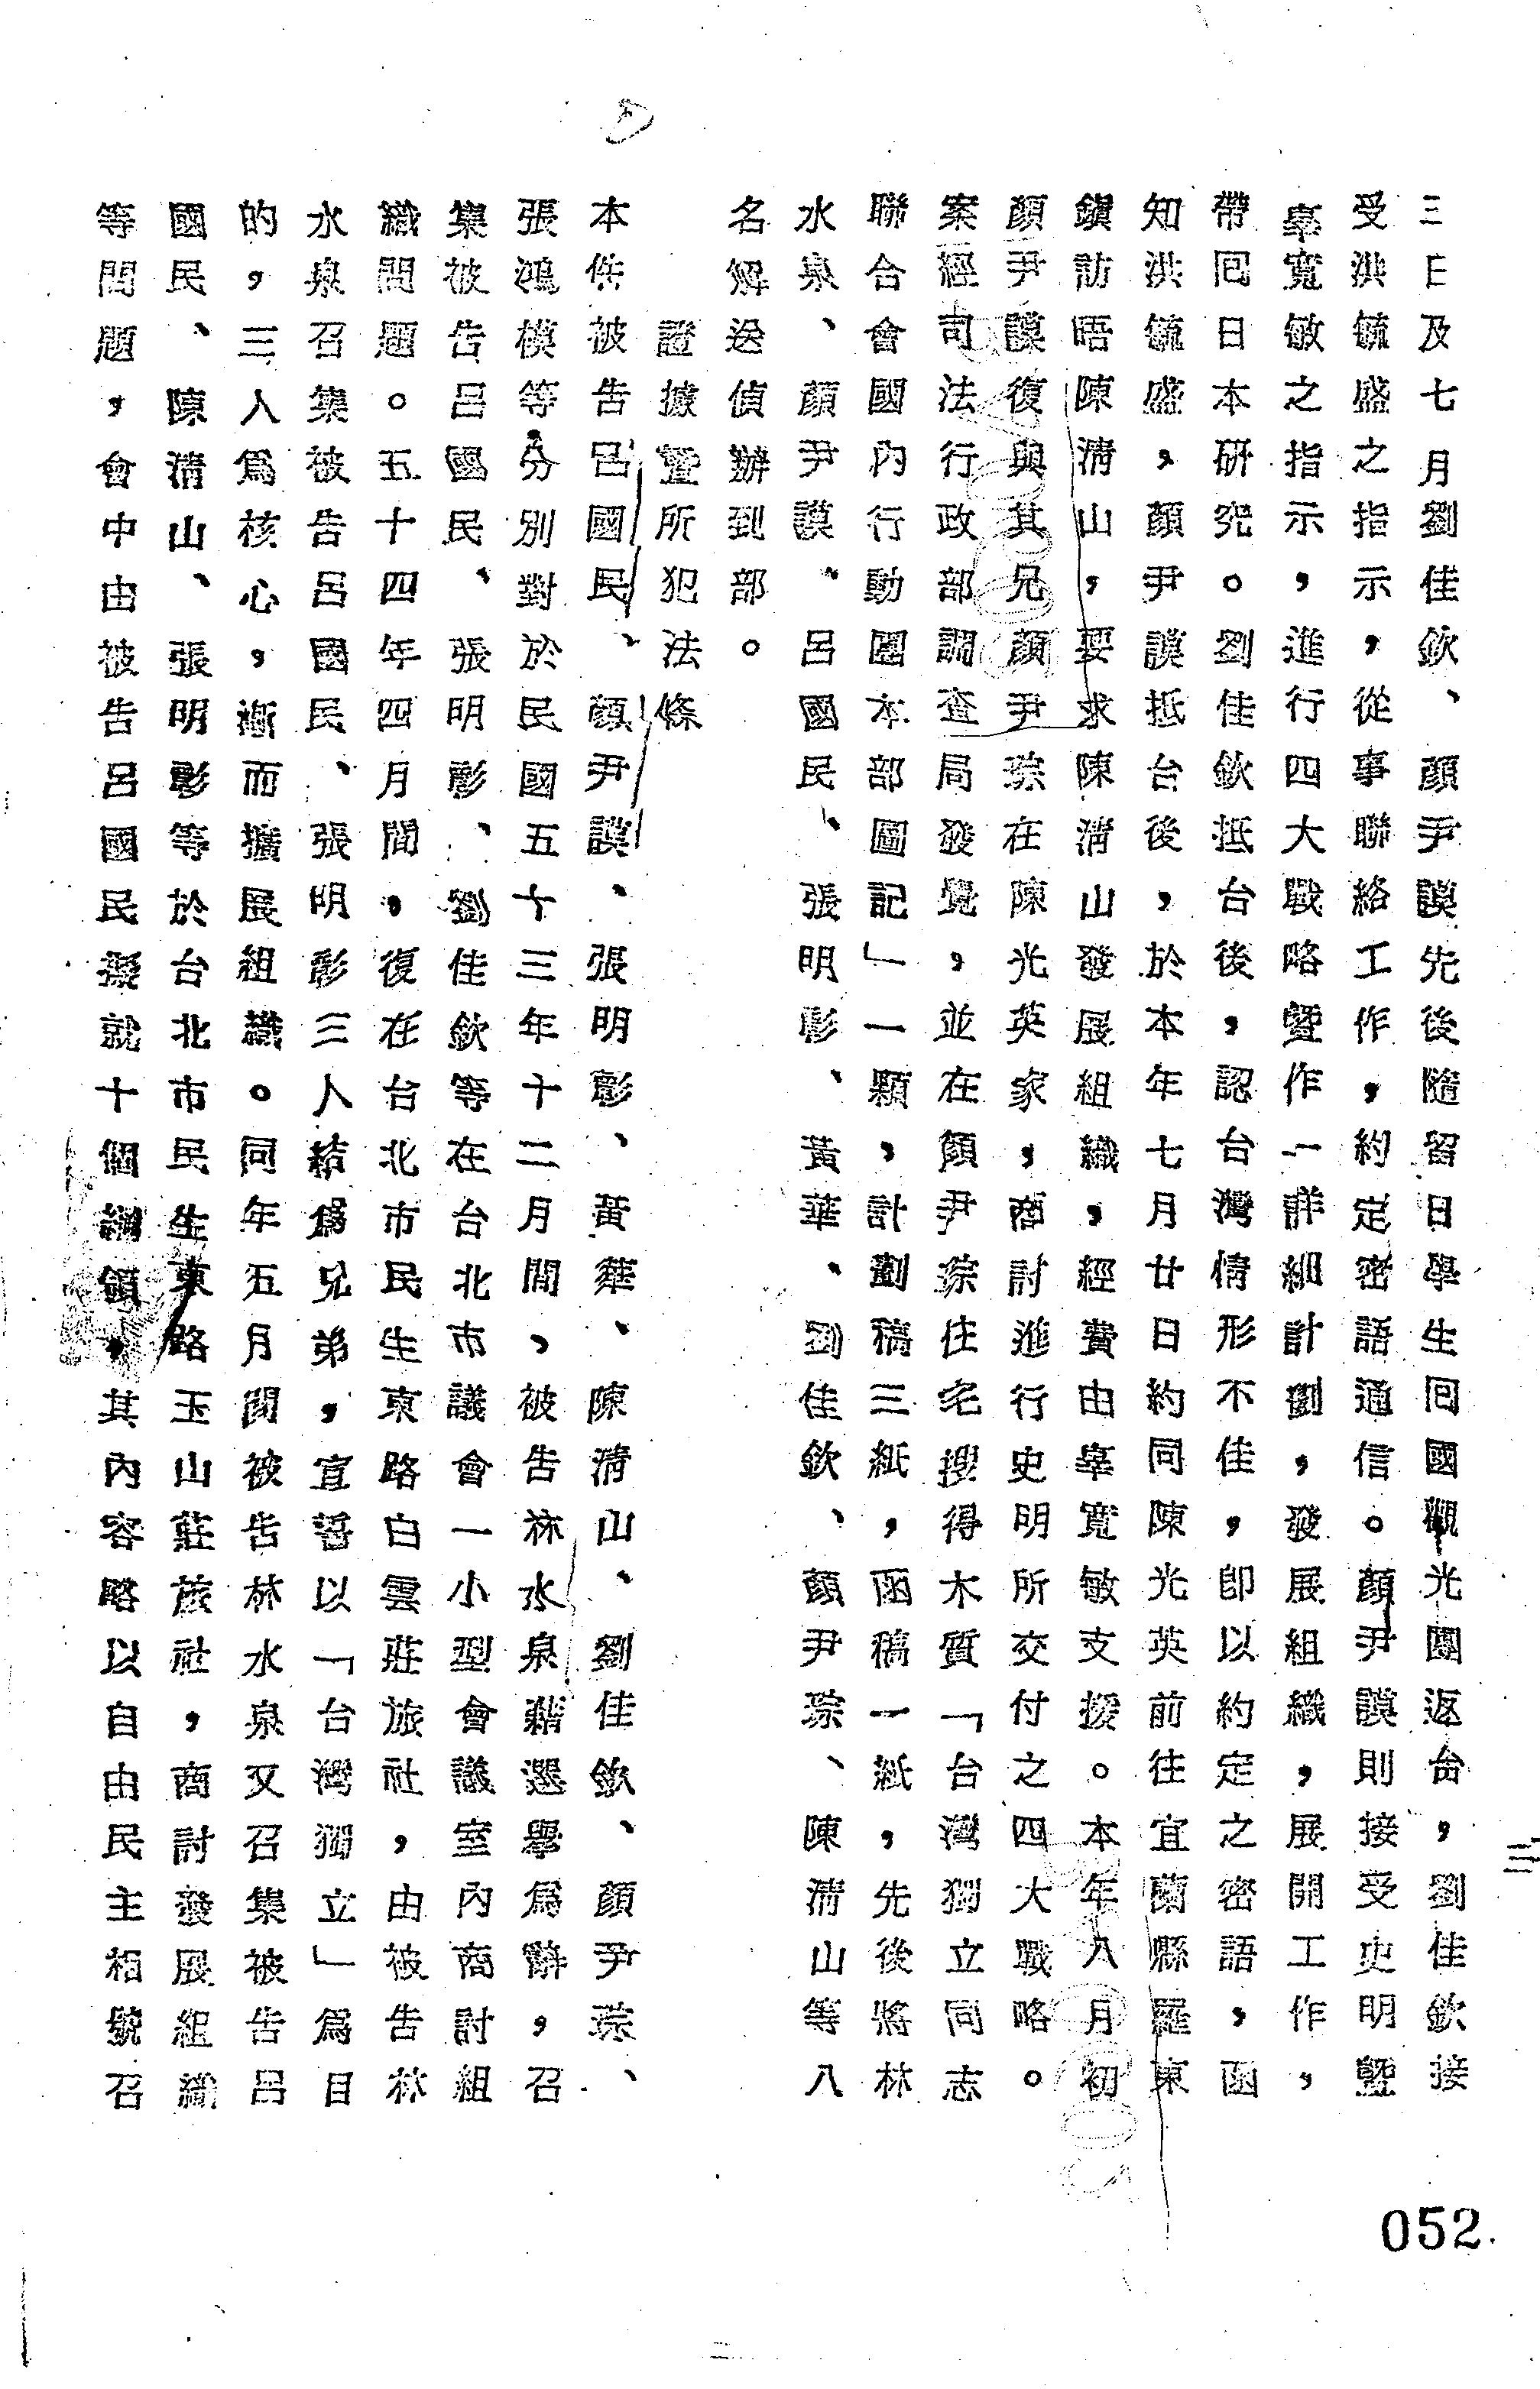 三日及七月劉佳欽、顏尹謨先後隨留日學生回國觀光團返台，劉佳欽接
受洪毓盛之指示，從事聯絡工作，約定密語通信。顏尹謨則接受史明暨
辜寬敏之指示，進行四大戰略暨作一詳細計劃，發展組織，展開工作，
帶回日本研究。劉佳欽抵台後，認台灣情形不佳，卽以約定之密語，函
知洪毓盛，顏尹謨抵台後，於本年七月廿日約同陳光英前往宜蘭縣羅東
鎭訪晤陳淸山，要求陳淸山發展組織，經費由辜寬敏支援。本年八月初
顏尹謨復與其兄顏尹琮在陳光英家，商討進行史明所交付之四大戰略。
案經司法行政部調查局發覺，並在顏尹琮住宅搜得木質「台灣獨立同志
聯合會國內行動團本部圖記」一顆，計劃稿三紙，函稿一紙，先後將林
水泉、顏尹謨、呂國民、張明彰、黃華、劉佳欽、顏尹琮、陳淸山等八
名解送偵辦到部。
證據暨所犯法條
本件被告呂國民、顏尹謨、張明彰、黃華、陳淸山、劉佳欽、顏尹琮、
張鴻模等分別對於民國五十三年十二月間，被告林水泉藉選舉爲辭，召
集被告呂國民、張明彰、劉佳欽等在台北市議會一小型會議室內商討組
織問題。五十四年四月間，復在台北市民生東路白雲莊旅社，由被告林
水泉召集被告呂國民、張明彰三人結爲兄弟，宣誓以「台灣獨立」爲目
的，三人爲核心，漸而擴展組織。同年五月間被告林水泉又召集被告呂
國民、陳淸山、張明彰等於台北市民生東路玉山莊旅社，商討發展組織
等問題，會中由被告呂國民擬就十個綱領，其內容略以自由民主相號召
三
052